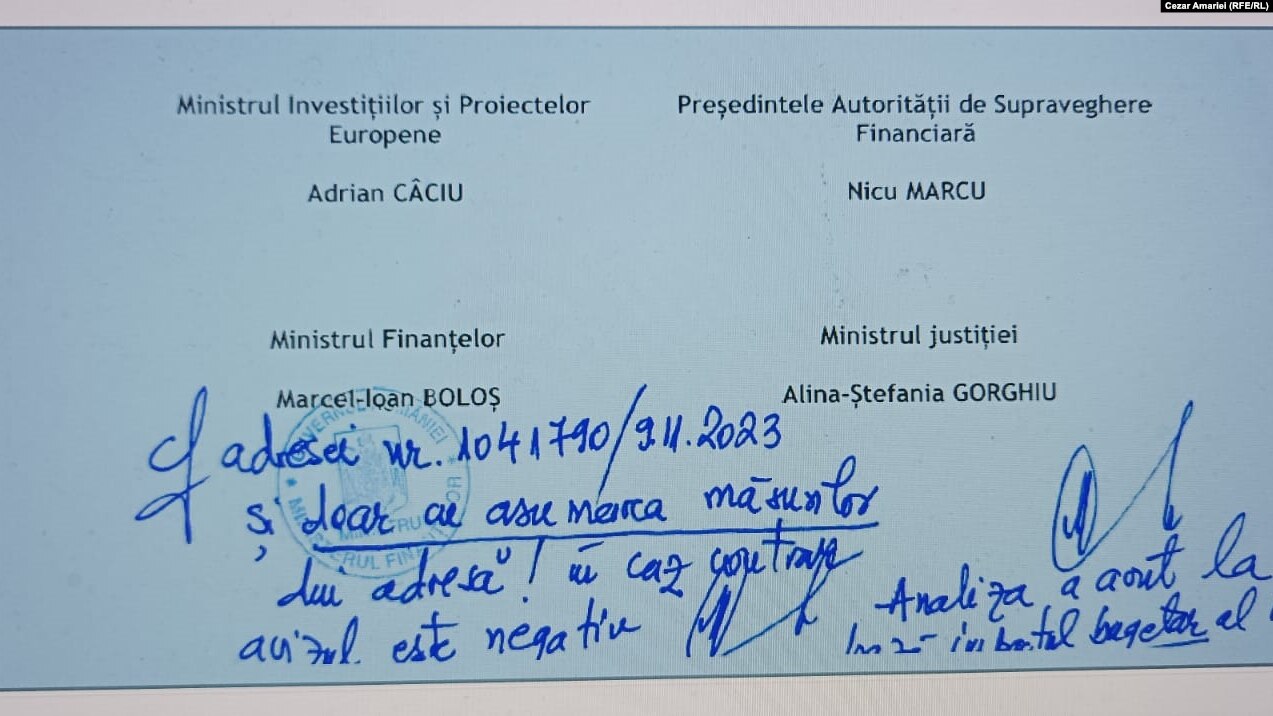 Cezar Amariei (RFE/RL)
Ministrul Investițiilor și Proiectelor
Europene
Adrian CÂCIU
Președintele Autorității de Supraveghere
Financiară
Nicu MARCU
Ministrul Finanțelor
Marcel-Ioan BOLOȘ
Ministrul justiției
Alina-Ștefania GORGHIU
adresei nr. 1041790/9.11.2023
și doar cu asumarea măsurilor
din adresă! în caz contrar
avizul este negativ
Analiza a avut la
bugetar al